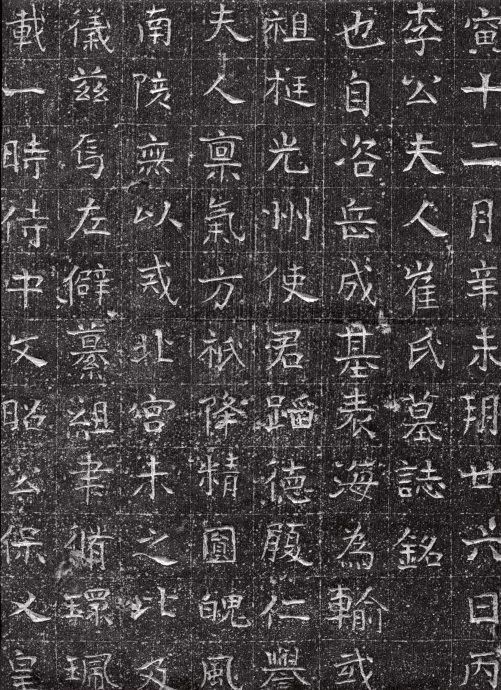 寅十二月辛未朔廿六日丙
李公夫人崔氏墓誌銘
也自咨岳成基表海為翰或
祖挺光州使君蹈德履仁譽
夫人稟氣方祇降精圓魄風
南陔無以戒北宮未之比及
儀茲焉左僻纂組聿脩環珮
載一時侍中文昭公保乂皇